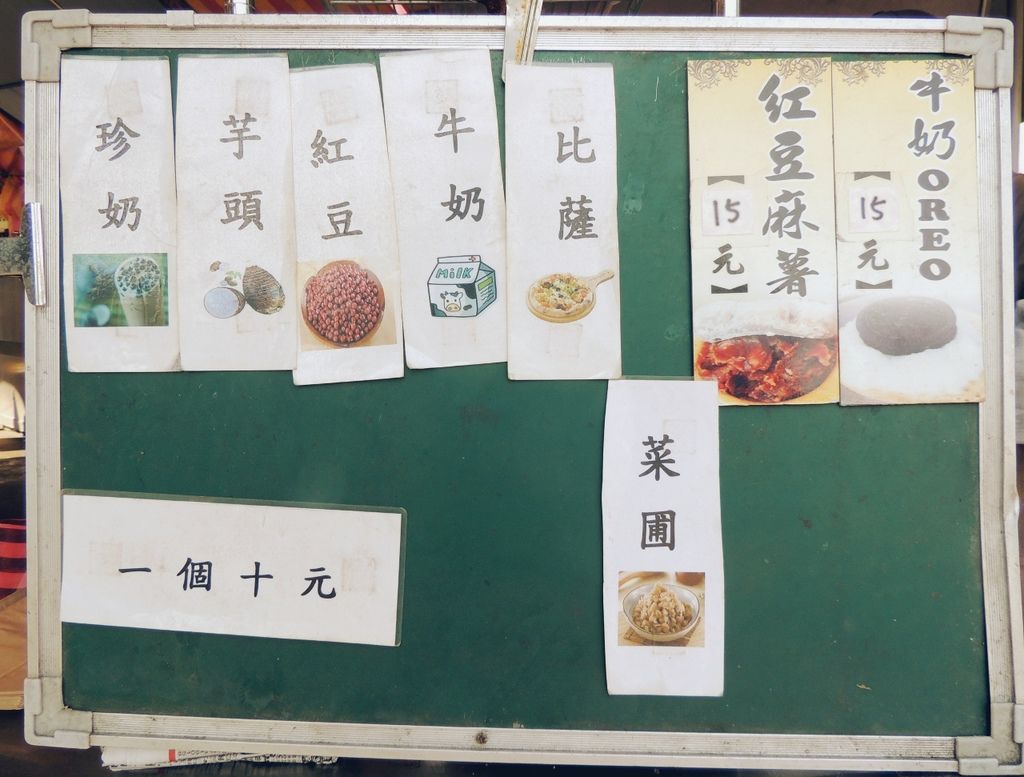 珍奶
芋頭
紅豆
牛奶
MiLK
比薩
紅豆麻薯
【15元】
牛奶OREO
【15元】
菜圃
一個十元